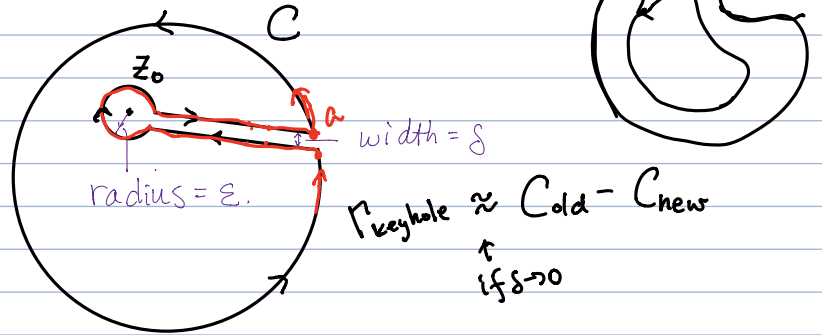 C
Z₀
a
width = δ
radius = ε.
Γkeyhole ≈ Cold - Cnew
↑
if δ→0